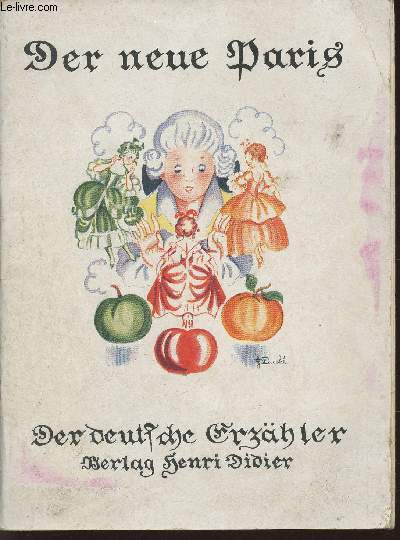 Le-livre.com
Der neue Paris
Der deutsche Erzähler
Verlag Henri Didier